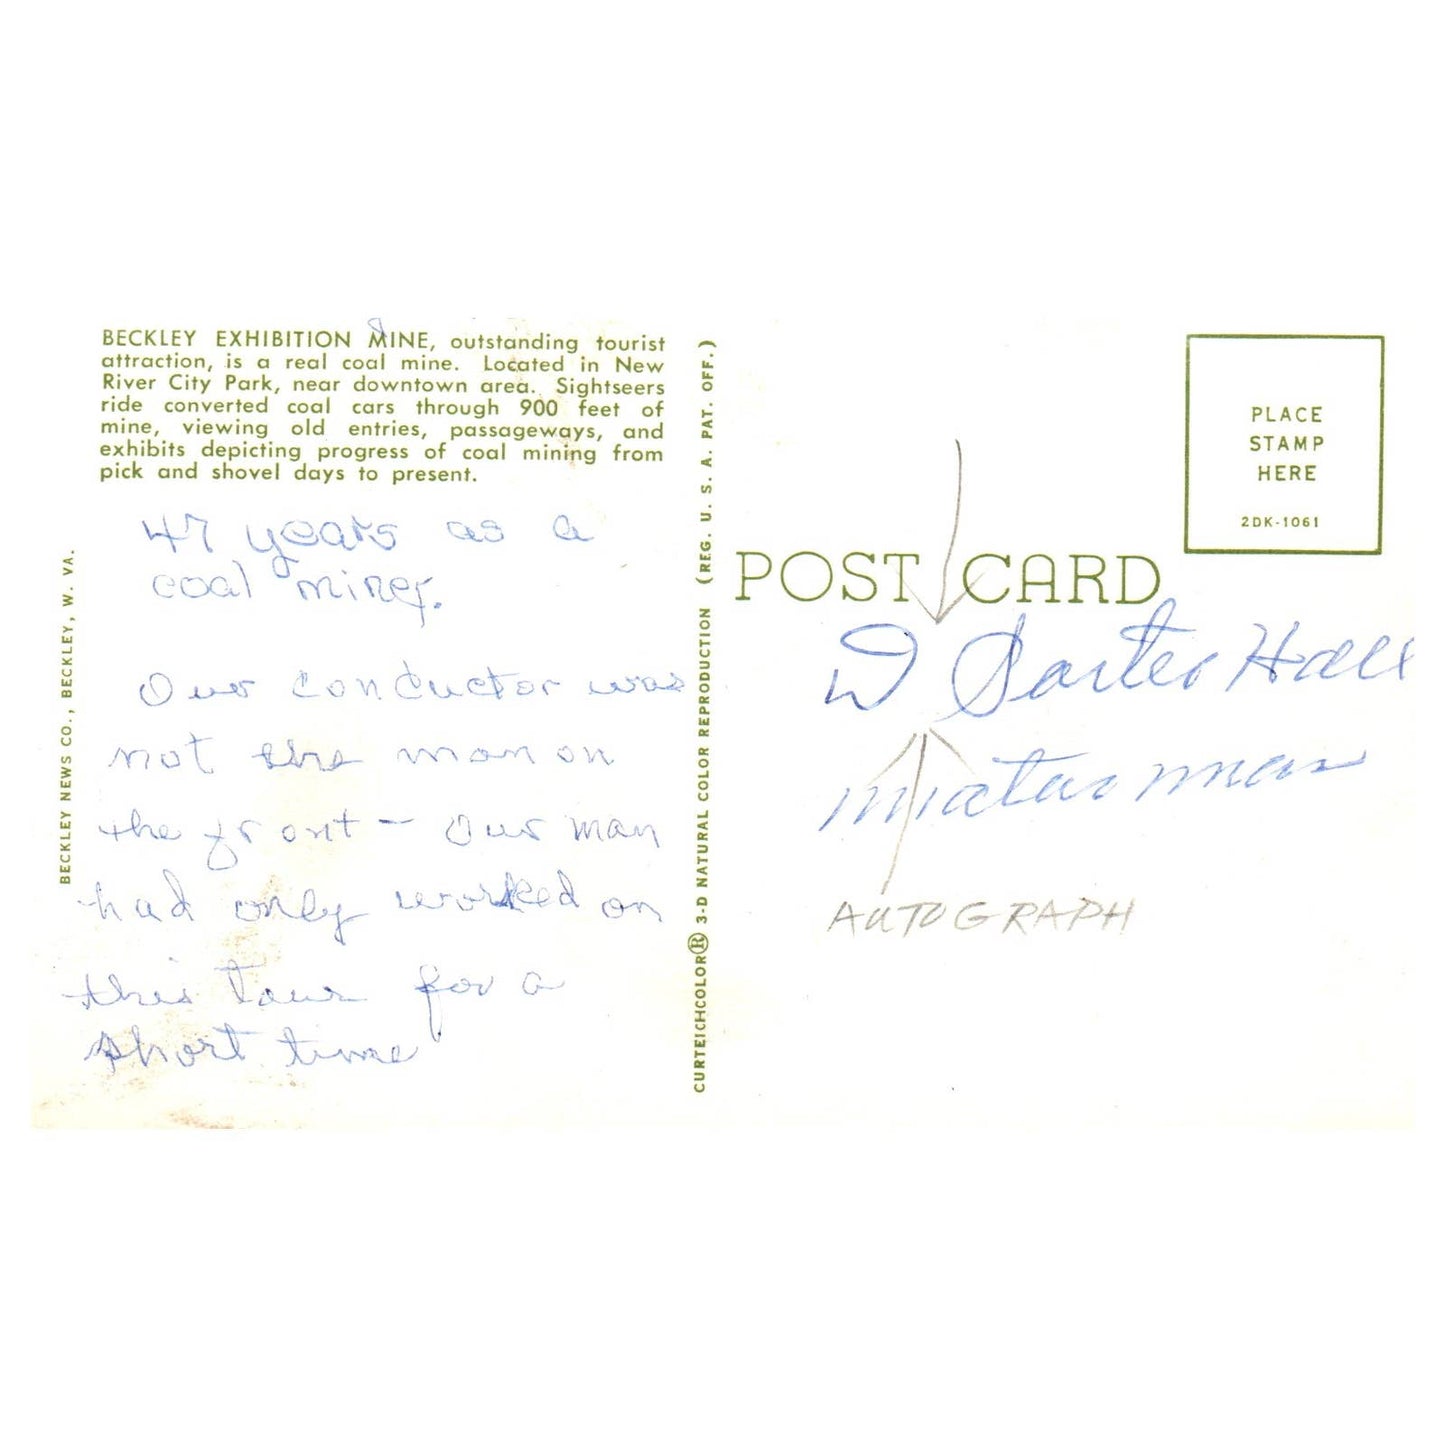 BECKLEY EXHIBITION MINE, outstanding tourist
attraction, is a real coal mine. Located in New
River City Park, near downtown area. Sightseers
ride converted coal cars through 900 feet of
mine, viewing old entries, passageways, and
exhibits depicting progress of coal mining from
pick and shovel days to present.
47 years as a
coal miner.
Our conductor was
not the man on
the front - Our man
had only worked on
this Tour for a
short time
BECKLEY NEWS CO., BECKLEY, W. VA.
CURTEICHCOLOR® 3-D NATURAL COLOR REPRODUCTION (REG. U. S. A. PAT. OFF.)
PLACE
STAMP
HERE
2DK-1061
POST CARD
D Hall
AUTOGRAPH